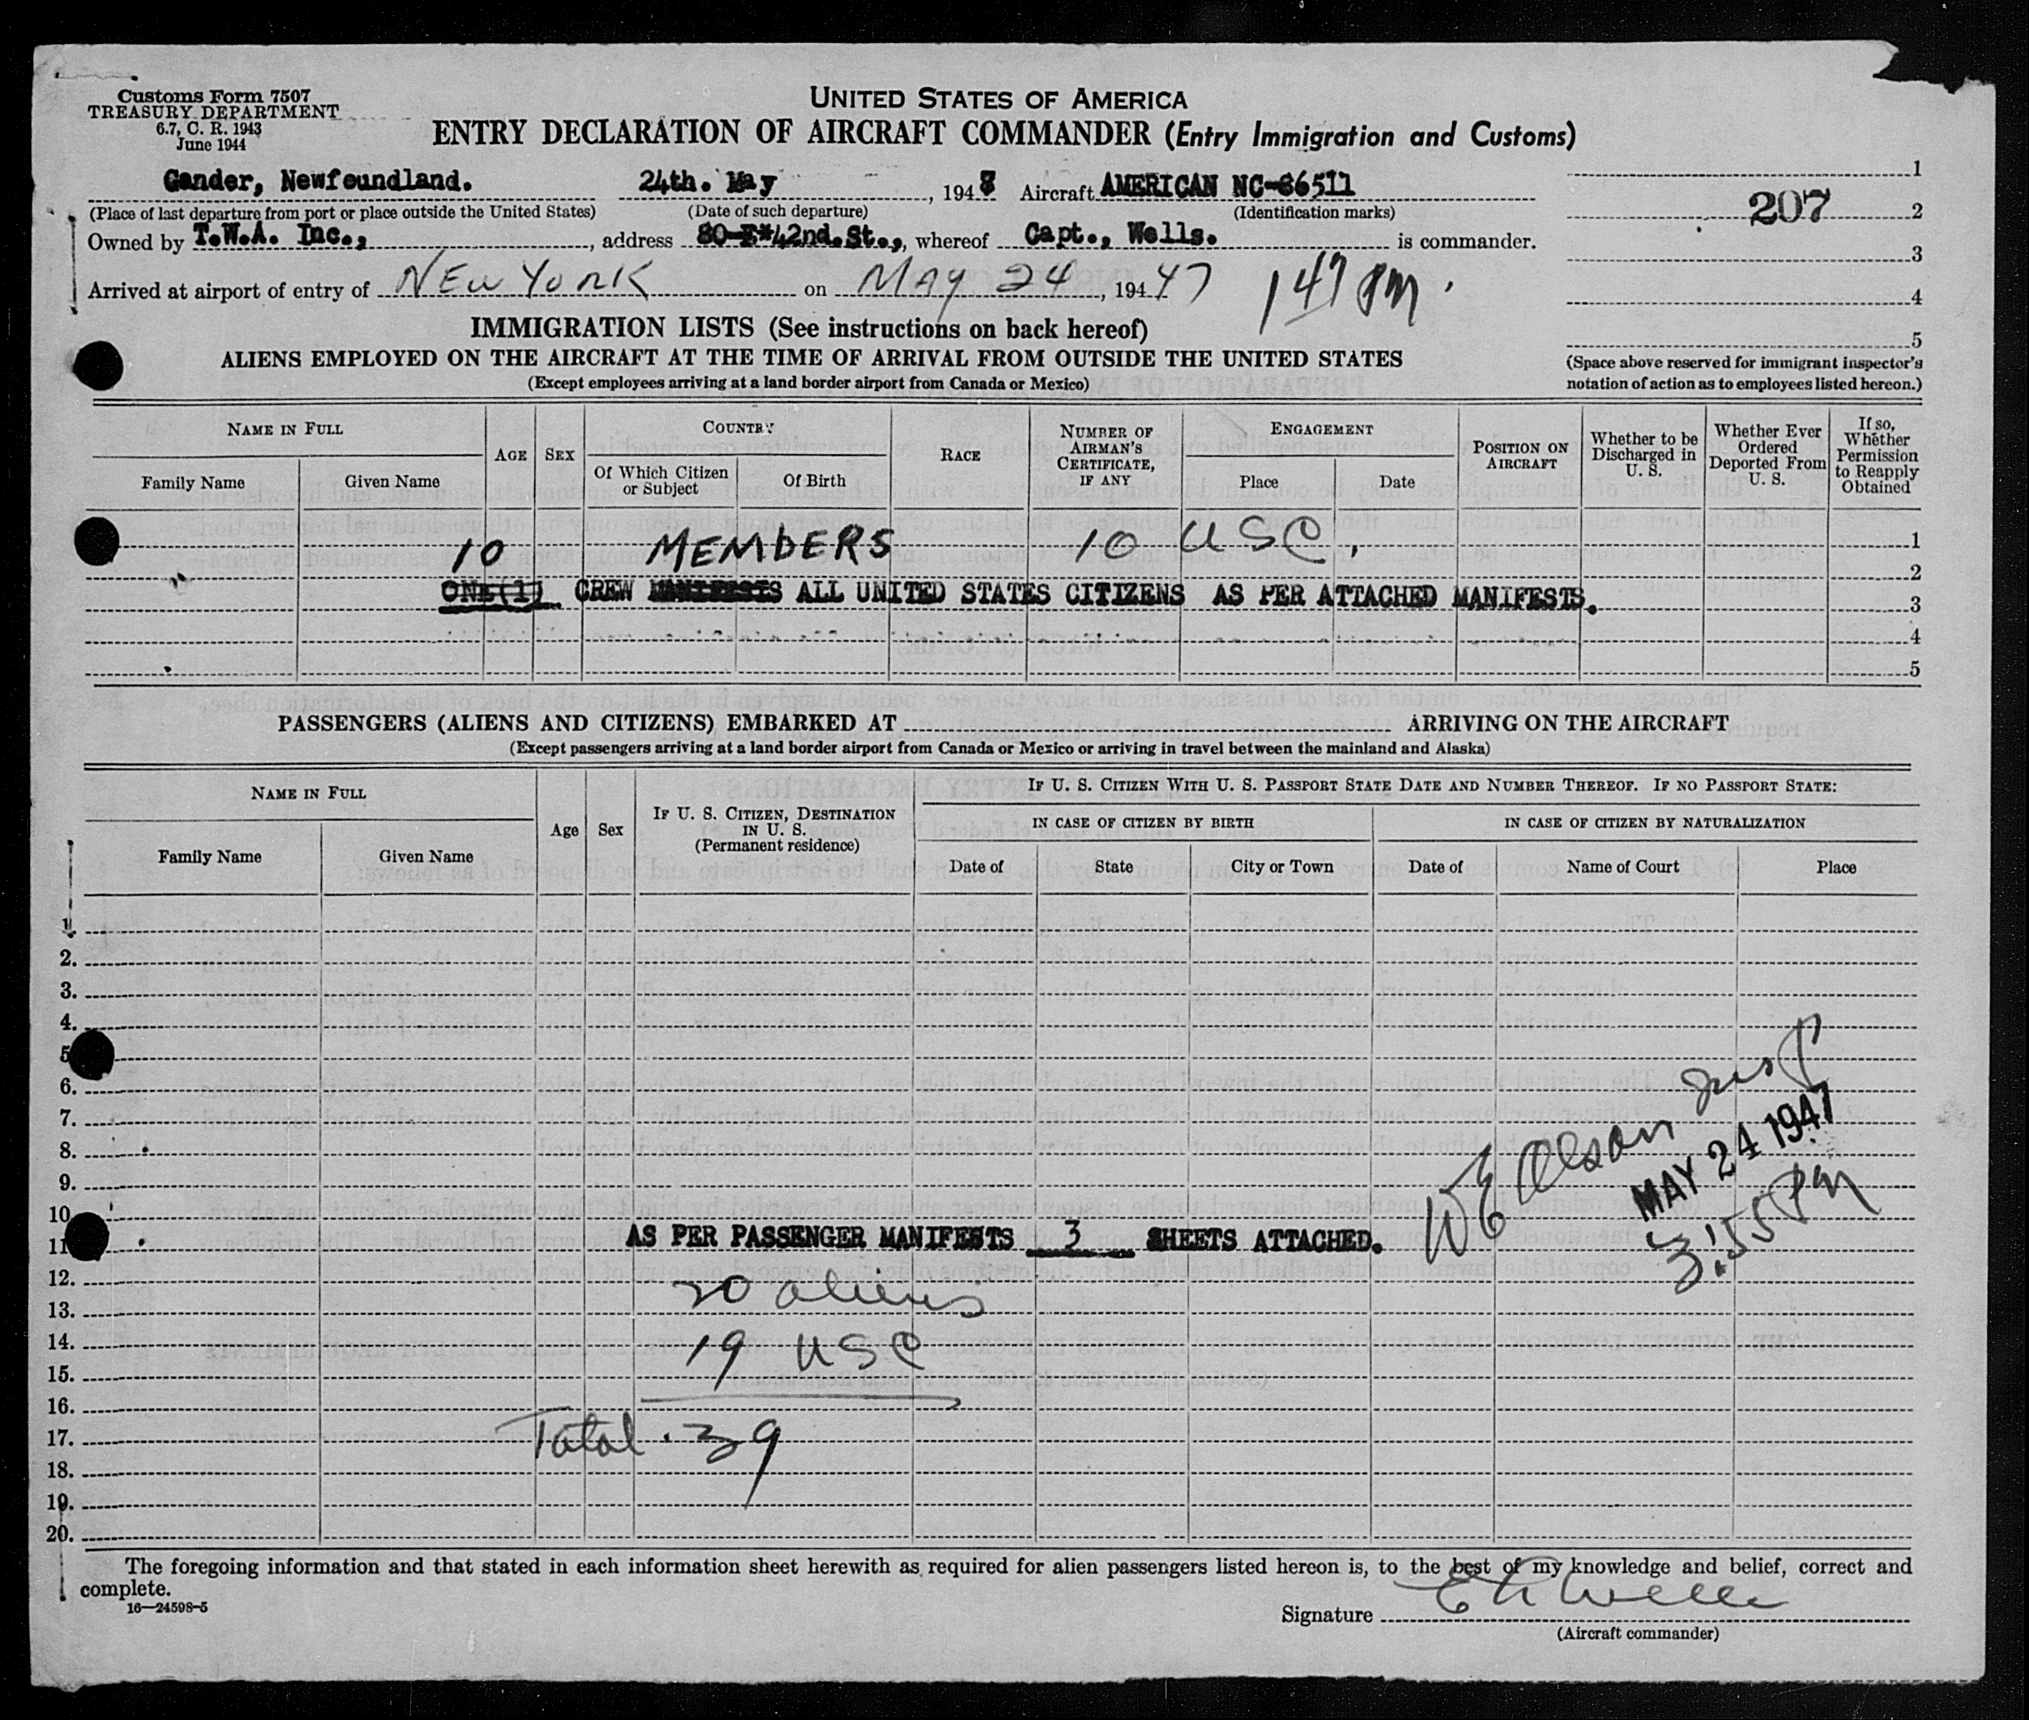 Customs Form 7507
TREASURY DEPARTMENT
6.7, C. R. 1943
June 1944
UNITED STATES OF AMERICA
ENTRY DECLARATION OF AIRCRAFT COMMANDER (Entry Immigration and Customs)
Gander, Newfoundland. 24th. May, 194 Aircraft AMERICAN NC-86511
(Place of last departure from port or place outside the United States) (Date of such departure) (Identification marks)
Owned by T.W.A. Inc., , address 80-E*42nd.St., , whereof Capt., Wells. is commander.
Arrived at airport of entry of NEW YORK on MAY 24, 194 47 147 PM.
1
207 2
3
4
5
(Space above reserved for immigrant inspector's
notation of action as to employees listed hereon.)
IMMIGRATION LISTS (See instructions on back hereof)
ALIENS EMPLOYED ON THE AIRCRAFT AT THE TIME OF ARRIVAL FROM OUTSIDE THE UNITED STATES
(Except employees arriving at a land border airport from Canada or Mexico)
NAME IN FULL
Family Name
Given Name
AGE
SEX
COUNTRY
Of Which Citizen
or Subject
Of Birth
RACE
NUMBER OF
AIRMAN'S
CERTIFICATE,
IF ANY
ENGAGEMENT
Place
Date
POSITION ON
AIRCRAFT
Whether to be
Discharged in
U. S.
Whether Ever
Ordered
Deported From
U. S.
If so,
Whether
Permission
to Reapply
Obtained
10 MEMBERS 10 USC. 1
2
ONE(1) CREW MANIFESTS ALL UNITED STATES CITIZENS AS PER ATTACHED MANIFESTS. 3
4
5
PASSENGERS (ALIENS AND CITIZENS) EMBARKED AT ARRIVING ON THE AIRCRAFT
(Except passengers arriving at a land border airport from Canada or Mexico or arriving in travel between the mainland and Alaska)
NAME IN FULL
Family Name
Given Name
Age
Sex
IF U. S. CITIZEN, DESTINATION
IN U. S.
(Permanent residence)
IF U. S. CITIZEN WITH U. S. PASSPORT STATE DATE AND NUMBER THEREOF. IF NO PASSPORT STATE:
IN CASE OF CITIZEN BY BIRTH
IN CASE OF CITIZEN BY NATURALIZATION
Date of
State
City or Town
Date of
Name of Court
Place
1.
2.
3.
4.
5
6.
7.
8.
9.
10
11 AS PER PASSENGER MANIFESTS 3 SHEETS ATTACHED.
W E Olson Insp
MAY 24 1947
3:55 PM
12. 20 aliens
13.
14. 19 USC
15.
16.
17. Total. 39
18.
19.
20.
The foregoing information and that stated in each information sheet herewith as required for alien passengers listed hereon is, to the best of my knowledge and belief, correct and
complete.
16—24598-5
Signature
(Aircraft commander)